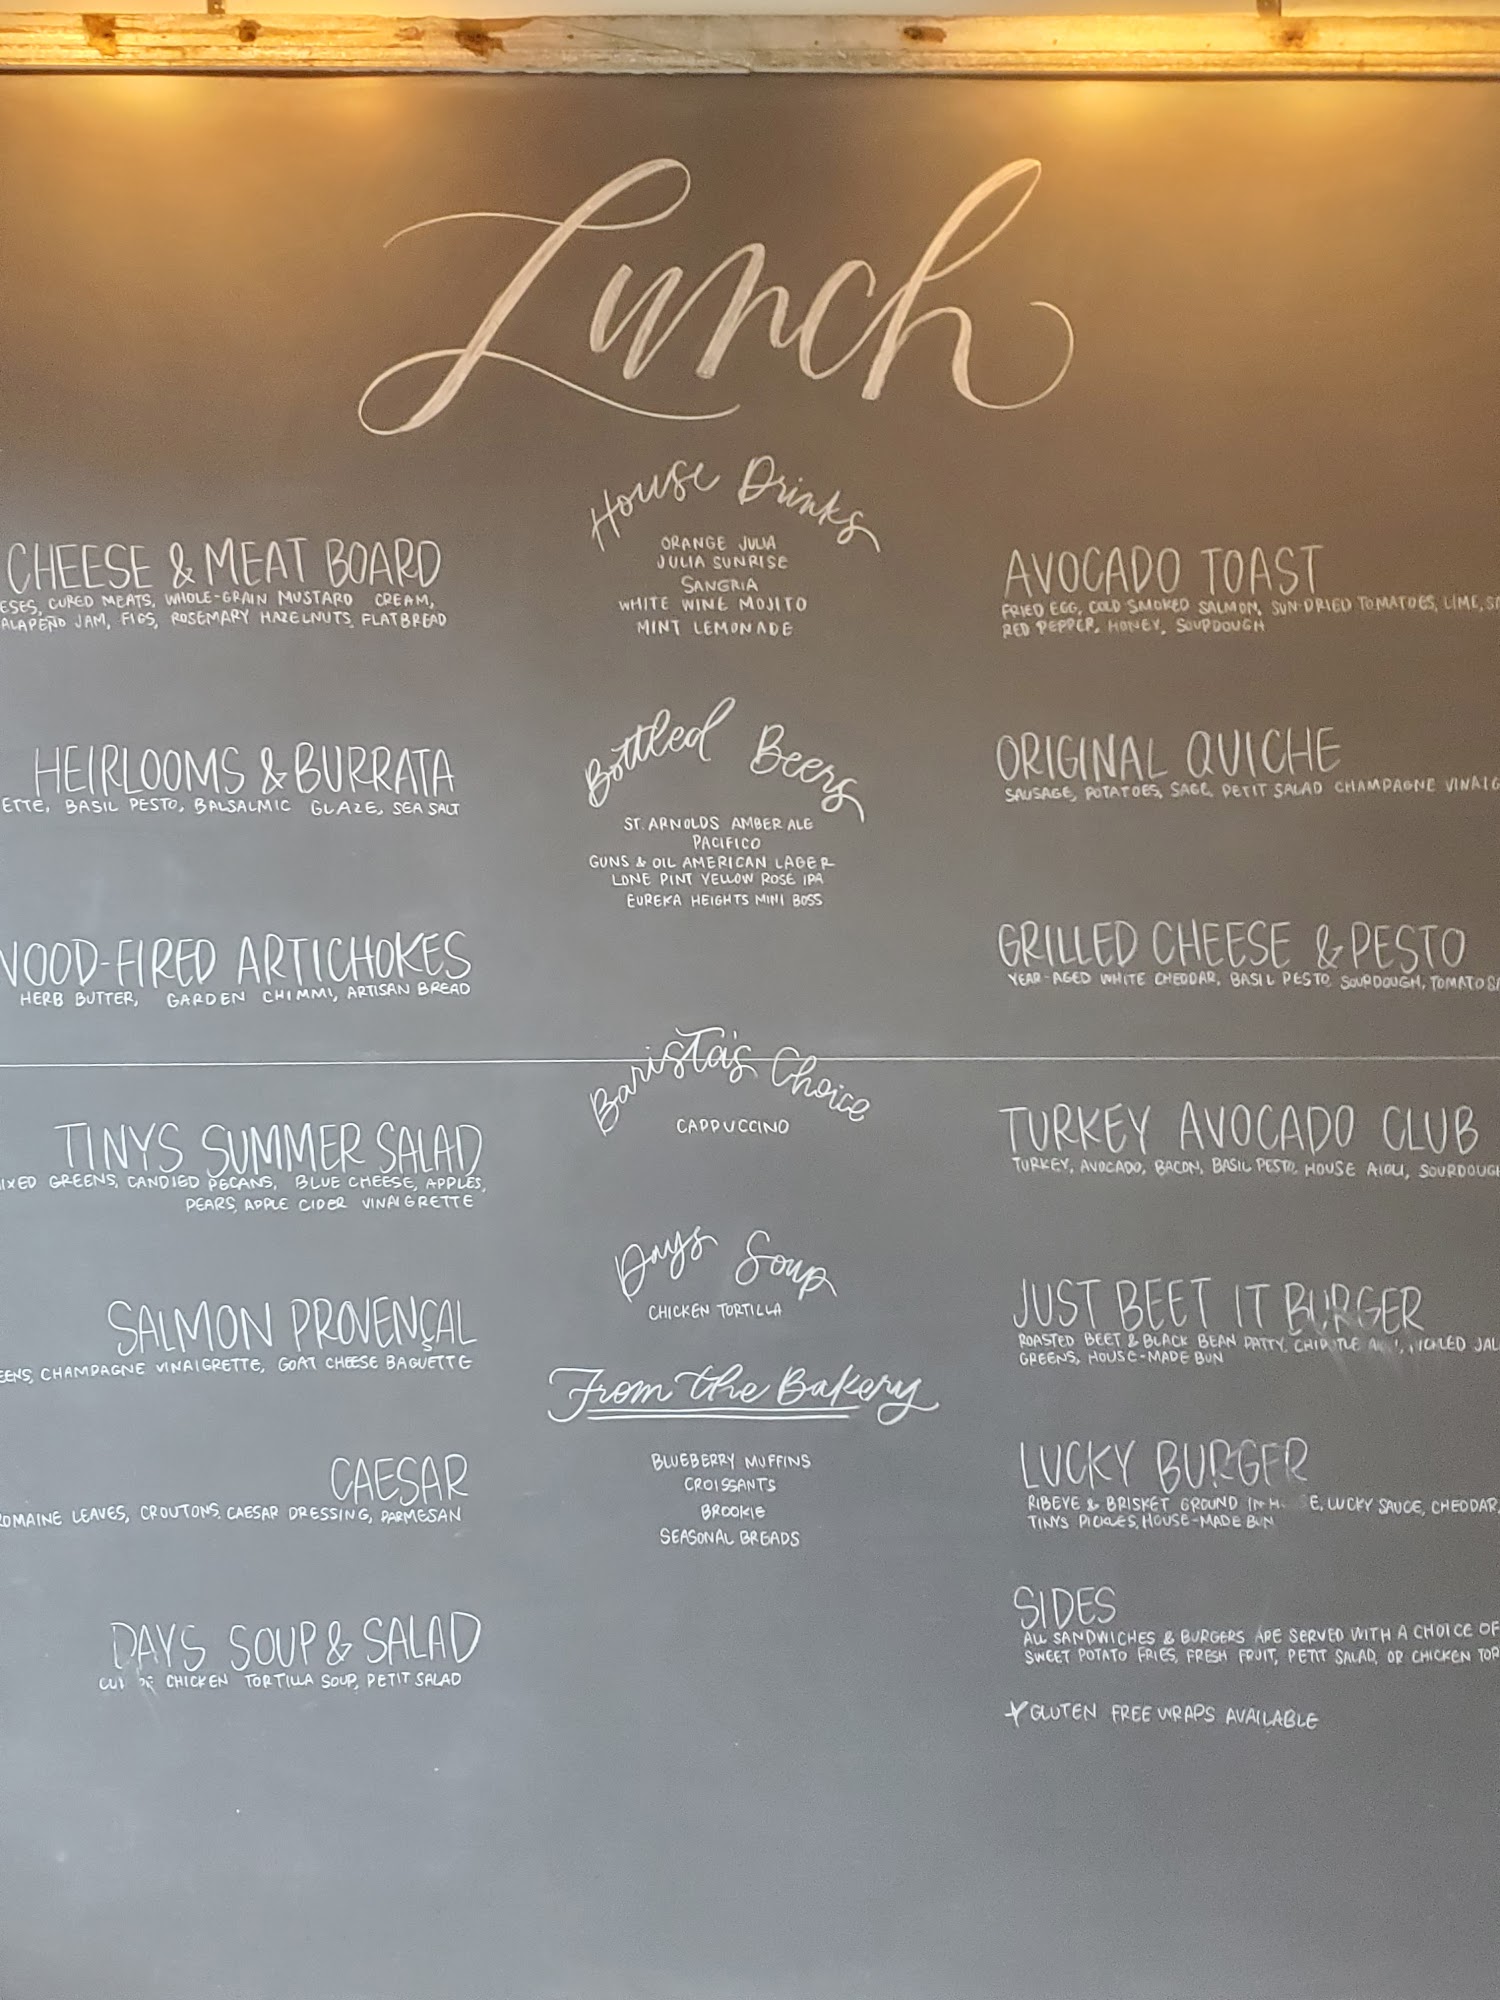 Lunch
CHEESE & MEAT BOARD
CURED MEATS, WHOLE-GRAIN MUSTARD CREAM,
JAM, FIGS, ROSEMARY HAZELNUTS, FLATBREAD
HEIRLOOMS & BURRATA
BASIL PESTO, BALSALMIC GLAZE, SEA SALT
ARTICHOKES
HERB BUTTER, GARDEN CHIMMI, ARTISAN BREAD
TINYS SUMMER SALAD
GREENS, CANDIED PECANS, BLUE CHEESE, APPLES,
PEARS, APPLE CIDER VINAIGRETTE
SALMON PROVENÇAL
CHAMPAGNE VINAIGRETTE, GOAT CHEESE BAGUETTE
CAESAR
LEAVES, CROUTONS, CAESAR DRESSING, PARMESAN
DAYS SOUP & SALAD
CHICKEN TORTILLA SOUP, PETIT SALAD
House Drinks
ORANGE JULIA
JULIA SUNRISE
SANGRIA
WHITE WINE MOJITO
MINT LEMONADE
Bottled Beers
ST. ARNOLDS AMBER ALE
PACIFICO
GUNS & OIL AMERICAN LAGER
LONE PINT YELLOW ROSE IPA
EUREKA HEIGHTS MINI BOSS
Barista's Choice
CAPPUCCINO
Days Soup
CHICKEN TORTILLA
From the Bakery
BLUEBERRY MUFFINS
CROISSANTS
BROOKIE
SEASONAL BREADS
AVOCADO TOAST
FRIED EGG, COLD SMOKED SALMON, SUN-DRIED TOMATOES, LIME,
RED PEPPER, HONEY, SOURDOUGH
ORIGINAL QUICHE
SAUSAGE, POTATOES, SAGE, PETIT SALAD CHAMPAGNE
GRILLED CHEESE & PESTO
YEAR-AGED WHITE CHEDDAR, BASIL PESTO, SOURDOUGH,
TURKEY AVOCADO CLUB
TURKEY, AVOCADO, BACON, BASIL PESTO, HOUSE AIOLI,
JUST BEET IT BURGER
ROASTED BEET & BLACK BEAN PATTY,
GREENS, HOUSE-MADE BUN
LUCKY BURGER
RIBEYE & BRISKET GROUND LUCKY SAUCE, CHEDDAR,
TINYS PICKLES, HOUSE-MADE BUN
SIDES
ALL SANDWICHES & BURGERS ARE SERVED WITH A CHOICE OF
SWEET POTATO FRIES, FRESH FRUIT, PETIT SALAD, OR CHICKEN
*GLUTEN FREE WRAPS AVAILABLE